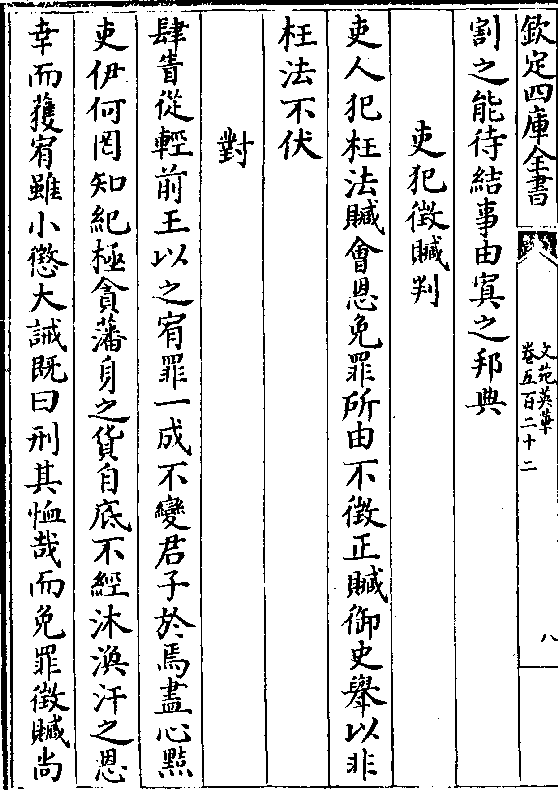 欽定四庫全書
文苑英華
卷五百二十二
八
割之能待結事由寘之邦典
吏犯徵贓判
吏人犯枉法贓會恩免罪所由不徵正贓御史舉以非
枉法不伏
對
肆眚從輕前王以之宥罪一成不變君子於焉盡心㸃
吏伊何罔知紀極貪藩身之貨自底不經沐渙汗之恩
幸而獲宥雖小懲大誡既曰刑其恤哉而免罪徵贓尚